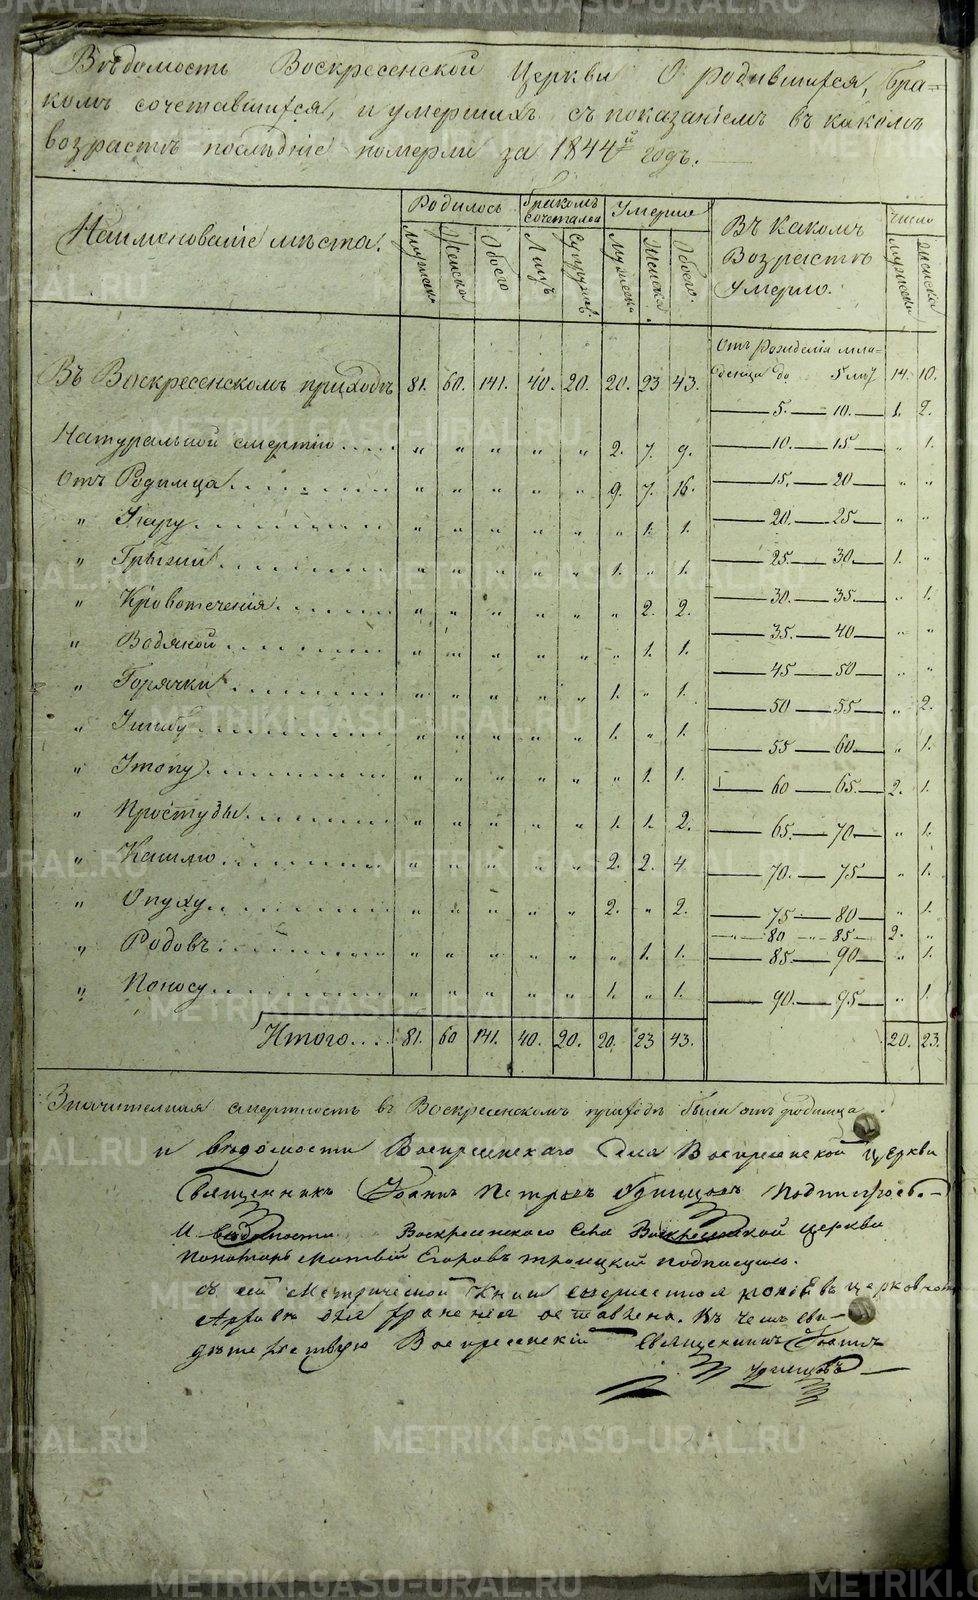 Вѣдомость Воскресенской Церкви О родившихся, бра-
комъ сочетавшихся, и умершихъ съ показанiемъ въ какомъ
возрастѣ послѣднiе померли за 1844й годъ.
Наименованiе мѣста. Родилось Бракомъ сочеталось Умерло Въ какомъ Возрастѣ Умерло. Число
Мужеска Женска Обоего Лицъ Супружес. Мужеска Женска Обоего. Мужеска Женска
Въ Воскресенскомъ приходѣ 81. 60. 141. 40. 20. 20. 23 43.
Отъ Рожденiя мла-
денца до 5 лѣтъ 14. 10.
5. — 10. 1. 2.
Натуральной смертiю „ „ „ „ „ 2. 7. 9.
10 — 15 „ 1.
Отъ Родимца „ „ „ „ „ 9. 7. 16.
15. — 20 „ „
„ Жару „ „ „ „ „ „ 1. 1.
20. — 25 „ „
„ Грыжи „ „ „ „ „ 1. „ 1.
25 — 30 1. „
„ Кровотеченiя „ „ „ „ „ „ 2. 2.
30. — 35. „ 1.
„ Водяной „ „ „ „ „ „ 1. 1.
35. — 40 „ „
„ Горячки „ „ „ „ „ 1. „ 1.
45 — 50 „ „
50 — 55 „ 2.
„ „ „ „ „ „ 1. „ 1.
55 — 60 „ 1.
„ „ „ „ „ „ „ 1. 1.
60 — 65. 2. 1.
„ Простуды „ „ „ „ „ 1. 1. 2.
65. — 70 „ 1.
„ Кашлю „ „ „ „ „ 2. 2. 4
70. — 75 „ 1.
„ Опуху „ „ „ „ „ 2. „ 2.
75 — 80 „ 1.
80 — 85 2. „
„ Родовъ „ „ „ „ „ „ 1. 1.
85. — 90 „ 1.
„ Поносу „ „ „ „ „ 1. „ 1.
90. — 95 „ 1.
Итого 81. 60 141. 40. 20. 20. 23 43. 20. 23.
Значительная смертность въ Воскресенскомъ приходѣ была отъ родимца
и вѣдомости Воскресенскаго Села Воскресенской церкви
Священникъ Iоаннъ Петровъ Удинцовъ подписуюсь
И вѣдомости Воскресенскаго Села Воскресенской церкви
Пономарь Матвѣй Егоровъ Троицкiй подписуюсь.
съ сей Метрической Книги копiя въ церковномъ
Архивѣ для храненiя оставлена. Въ чемъ сви-
дѣтельствую Воскресенскiй Священникъ Iоаннъ
Удинцовъ
METRIKI.GASO-URAL.RU